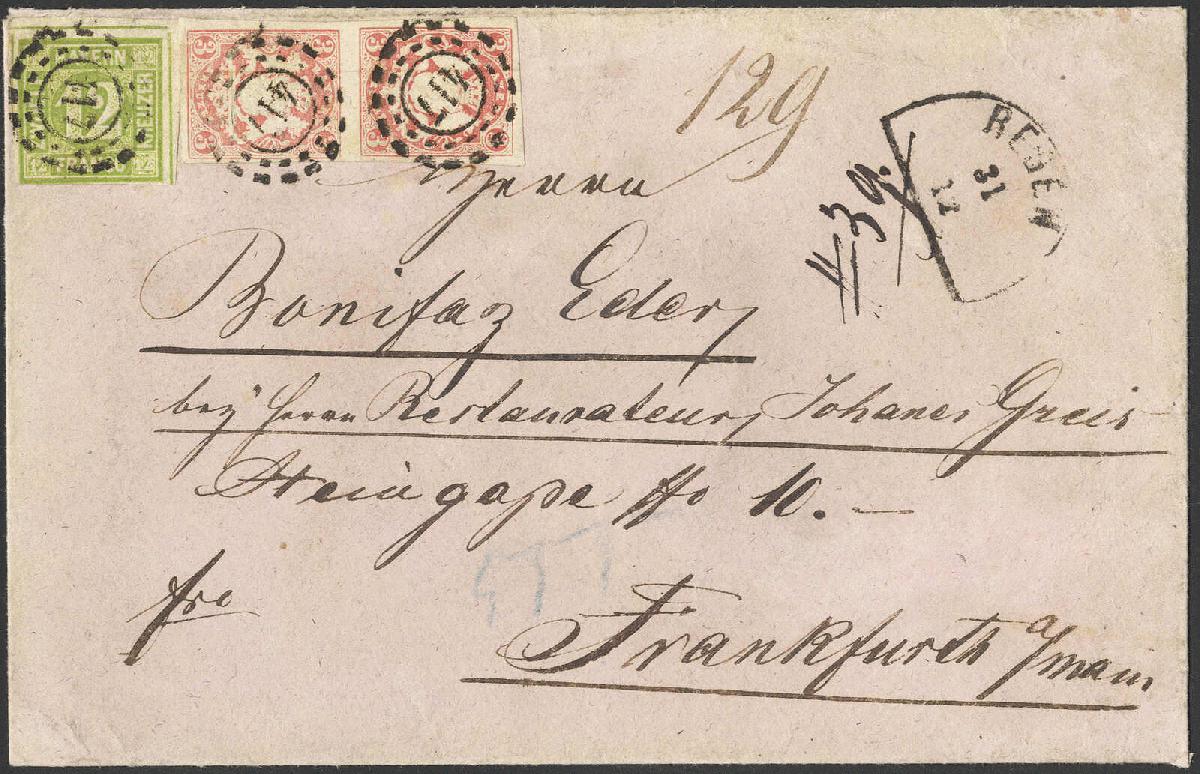 BAYERN
12
417
3 3
417
3 3
417
129
REGEN
31
12
Herrn
Bonifaz Eder,
bey Herrn Restaurateur, Johanes Greis
Steingaße No 10. —
fro
Frankfurth a/main